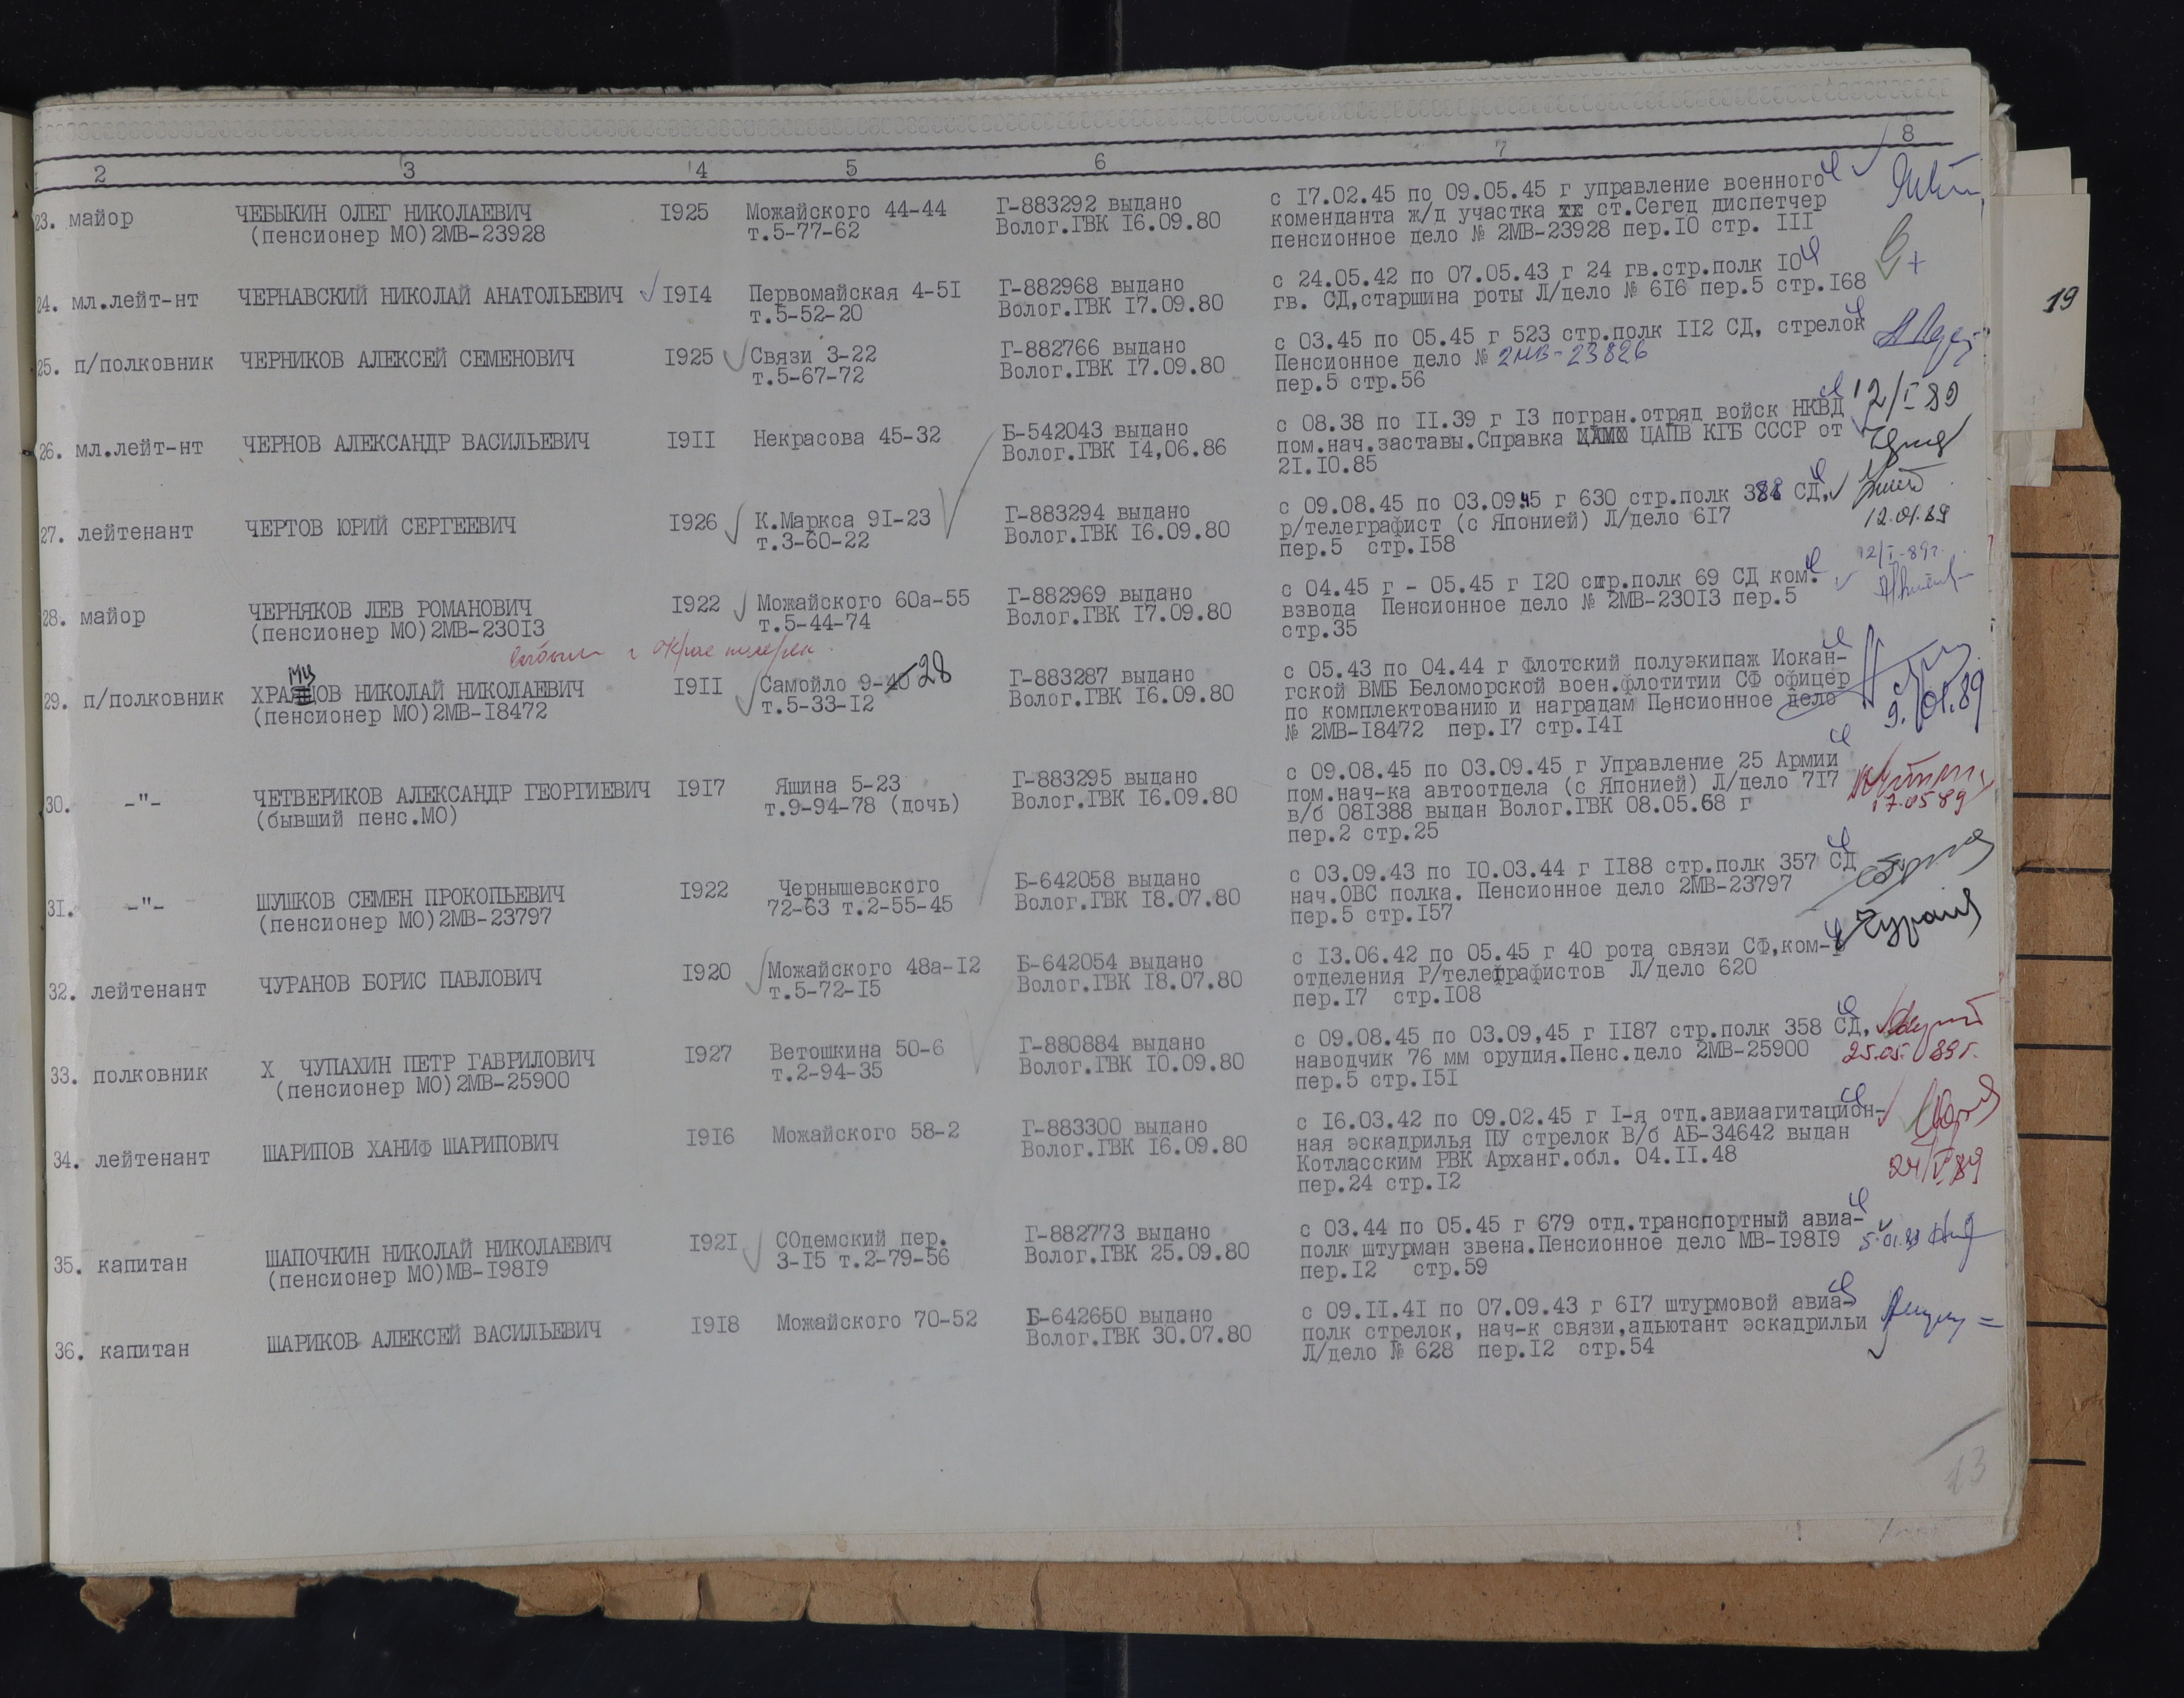 2 3 4 5 6 7 8
23. майор ЧЕБЫКИН ОЛЕГ НИКОЛАЕВИЧ I925 Можайского 44-44 Г-883292 выдано с I7.02.45 по 09.05.45 г управление военного
(пенсионер МО)2МВ-23928 т.5-77-62 Волог.ГВК I6.09.80 коменданта ж/д участка ст.Сегед диспетчер
пенсионное дело № 2МВ-23928 пер.I0 стр. III
24. мл.лейт-нт ЧЕРНАВСКИЙ НИКОЛАЙ АНАТОЛЬЕВИЧ I9I4 Первомайская 4-5I Г-882968 выдано с 24.05.42 по 07.05.43 г 24 гв.стр.полк I0
т.5-52-20 Волог.ГВК I7.09.80 гв. СД,старшина роты Л/дело № 6I6 пер.5 стр.I68
19
25. п/полковник ЧЕРНИКОВ АЛЕКСЕЙ СЕМЕНОВИЧ I925 Связи 3-22 Г-882766 выдано с 03.45 по 05.45 г 523 стр.полк II2 СД, стрелок
т.5-67-72 Волог.ГВК I7.09.80 Пенсионное дело № 2МВ-23826
пер.5 стр.56
26. мл.лейт-нт ЧЕРНОВ АЛЕКСАНДР ВАСИЛЬЕВИЧ I9II Некрасова 45-32 Б-542043 выдано с 08.38 по II.39 г I3 погран.отряд войск НКВД 12/I-89
Волог.ГВК I4,06.86 пом.нач.заставы.Справка ЦАПВ КГБ СССР от
2I.I0.85
27. лейтенант ЧЕРТОВ ЮРИЙ СЕРГЕЕВИЧ I926 К.Маркса 9I-23 Г-883294 выдано с 09.08.45 по 03.09.45 г 630 стр.полк СД,
т.3-60-22 Волог.ГВК I6.09.80 р/телеграфист (с Японией) Л/дело 6I7 12.01.89
пер.5 стр.I58
28. майор ЧЕРНЯКОВ ЛЕВ РОМАНОВИЧ I922 Можайского 60а-55 Г-882969 выдано с 04.45 г - 05.45 г I20 стр.полк 69 СД ком. 12/I-89г.
(пенсионер МО)2МВ-230I3 т.5-44-74 Волог.ГВК I7.09.80 взвода Пенсионное дело № 2МВ-230I3 пер.5
стр.35
29. п/полковник ХРАМЦОВ НИКОЛАЙ НИКОЛАЕВИЧ I9II Самойло 9-28 Г-883287 выдано с 05.43 по 04.44 г Флотский полуэкипаж Иокан-
(пенсионер МО)2МВ-I8472 т.5-33-I2 Волог.ГВК I6.09.80 гской ВМБ Беломорской воен.флотитии СФ офицер
по комплектованию и наградам Пенсионное дело 9.01.89
№ 2МВ-I8472 пер.I7 стр.I4I
30. -"- ЧЕТВЕРИКОВ АЛЕКСАНДР ГЕОРГИЕВИЧ I9I7 Яшина 5-23 Г-883295 выдано с 09.08.45 по 03.09.45 г Управление 25 Армии
(бывший пенс.МО) т.9-94-78 (дочь) Волог.ГВК I6.09.80 пом.нач-ка автоотдела (с Японией) Л/дело 7I7
в/б 08I388 выдан Волог.ГВК 08.05.68 г 17.05 89
пер.2 стр.25
3I. -"- ШУШКОВ СЕМЕН ПРОКОПЬЕВИЧ I922 Чернышевского Б-642058 выдано с 03.09.43 по I0.03.44 г II88 стр.полк 357 СД
(пенсионер МО)2МВ-23797 72-63 т.2-55-45 Волог.ГВК I8.07.80 нач.ОВС полка. Пенсионное дело 2МВ-23797
пер.5 стр.I57
32. лейтенант ЧУРАНОВ БОРИС ПАВЛОВИЧ I920 Можайского 48а-I2 Б-642054 выдано с I3.06.42 по 05.45 г 40 рота связи СФ,ком-р
т.5-72-I5 Волог.ГВК I8.07.80 отделения Р/телеграфистов Л/дело 620
пер.I7 стр.I08
33. полковник Х ЧУПАХИН ПЕТР ГАВРИЛОВИЧ I927 Ветошкина 50-6 Г-880884 выдано с 09.08.45 по 03.09,45 г II87 стр.полк 358 СД,
(пенсионер МО)2МВ-25900 т.2-94-35 Волог.ГВК I0.09.80 наводчик 76 мм орудия.Пенс.дело 2МВ-25900 25.05. 89г.
пер.5 стр.I5I
34. лейтенант ШАРИПОВ ХАНИФ ШАРИПОВИЧ I9I6 Можайского 58-2 Г-883300 выдано с I6.03.42 по 09.02.45 г I-я отд.авиаагитацион-
Волог.ГВК I6.09.80 ная эскадрилья ПУ стрелок В/б АБ-34642 выдан
Котласским РВК Арханг.обл. 04.II.48 24/V 89
пер.24 стр.I2
35. капитан ШАПОЧКИН НИКОЛАЙ НИКОЛАЕВИЧ I92I СОдемский пер. Г-882773 выдано с 03.44 по 05.45 г 679 отд.транспортный авиа-
(пенсионер МО)МВ-I98I9 3-I5 т.2-79-56 Волог.ГВК 25.09.80 полк штурман звена.Пенсионное дело МВ-I98I9 5.01.89
пер.I2 стр.59
36. капитан ШАРИКОВ АЛЕКСЕЙ ВАСИЛЬЕВИЧ I9I8 Можайского 70-52 Б-642650 выдано с 09.II.4I по 07.09.43 г 6I7 штурмовой авиа-
Волог.ГВК 30.07.80 полк стрелок, нач-к связи,адьютант эскадрильи
Л/дело № 628 пер.I2 стр.54
13